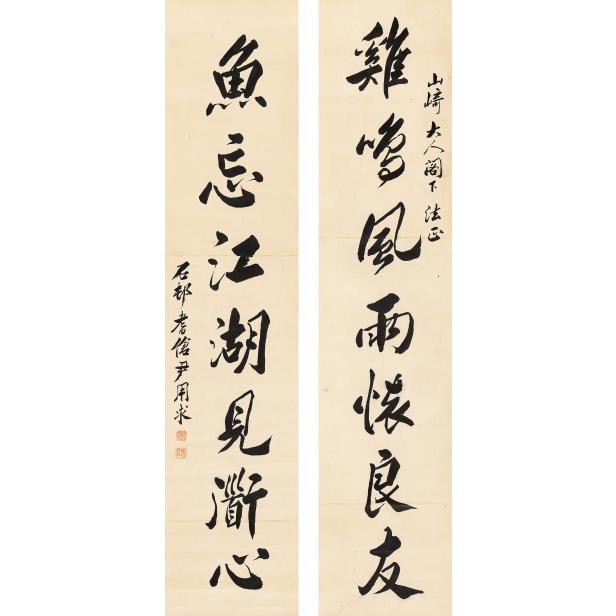 山崎大人閣下 法正
雞鳴風雨懷良友
魚忘江湖見衟心
石邨耆傖尹用求